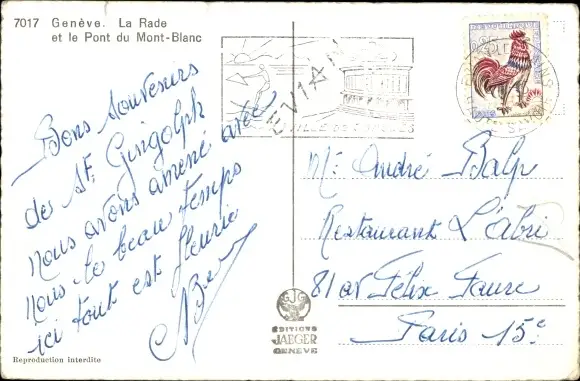 7017 Genève. La Rade
et le Pont du Mont-Blanc
EVIAN
Bons souvenirs
de St. Gingolph
nous avons amené avec
nous le beau temps
ici tout est fleurie
Mr. André Balp
Restaurant L'abri
81 av Felix Faure
Paris 15e
EDITIONS
JAEGER
GENÈVE
Reproduction interdite